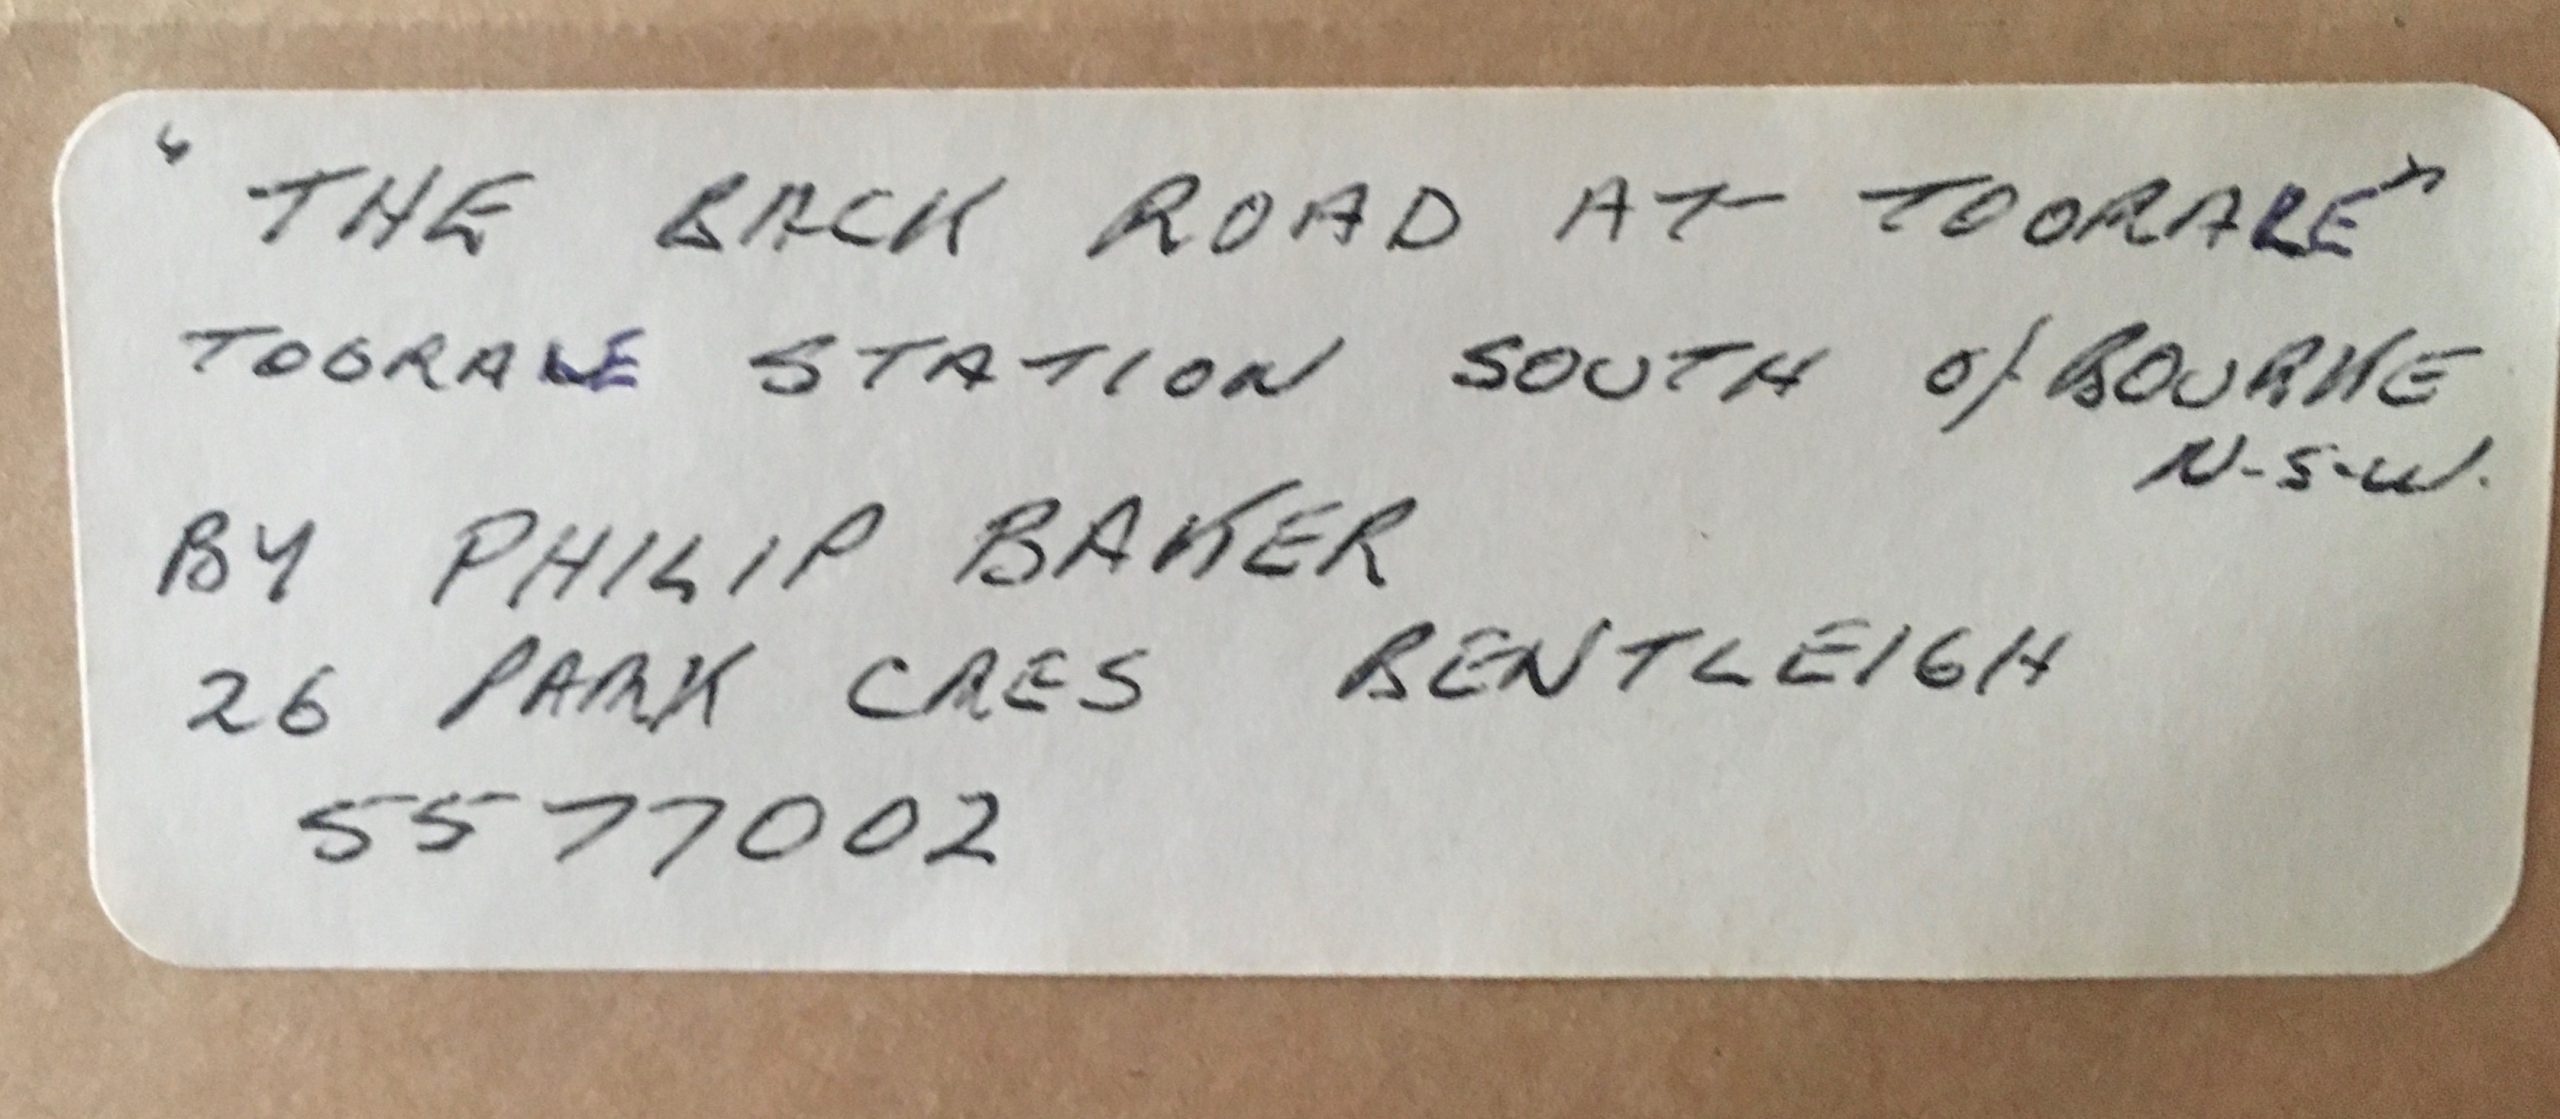 "THE BACK ROAD AT TOORALE"
TOORALE STATION SOUTH of BOURKE
N-S-W.
BY PHILIP BAKER
26 PARK CRES BENTLEIGH
5577002